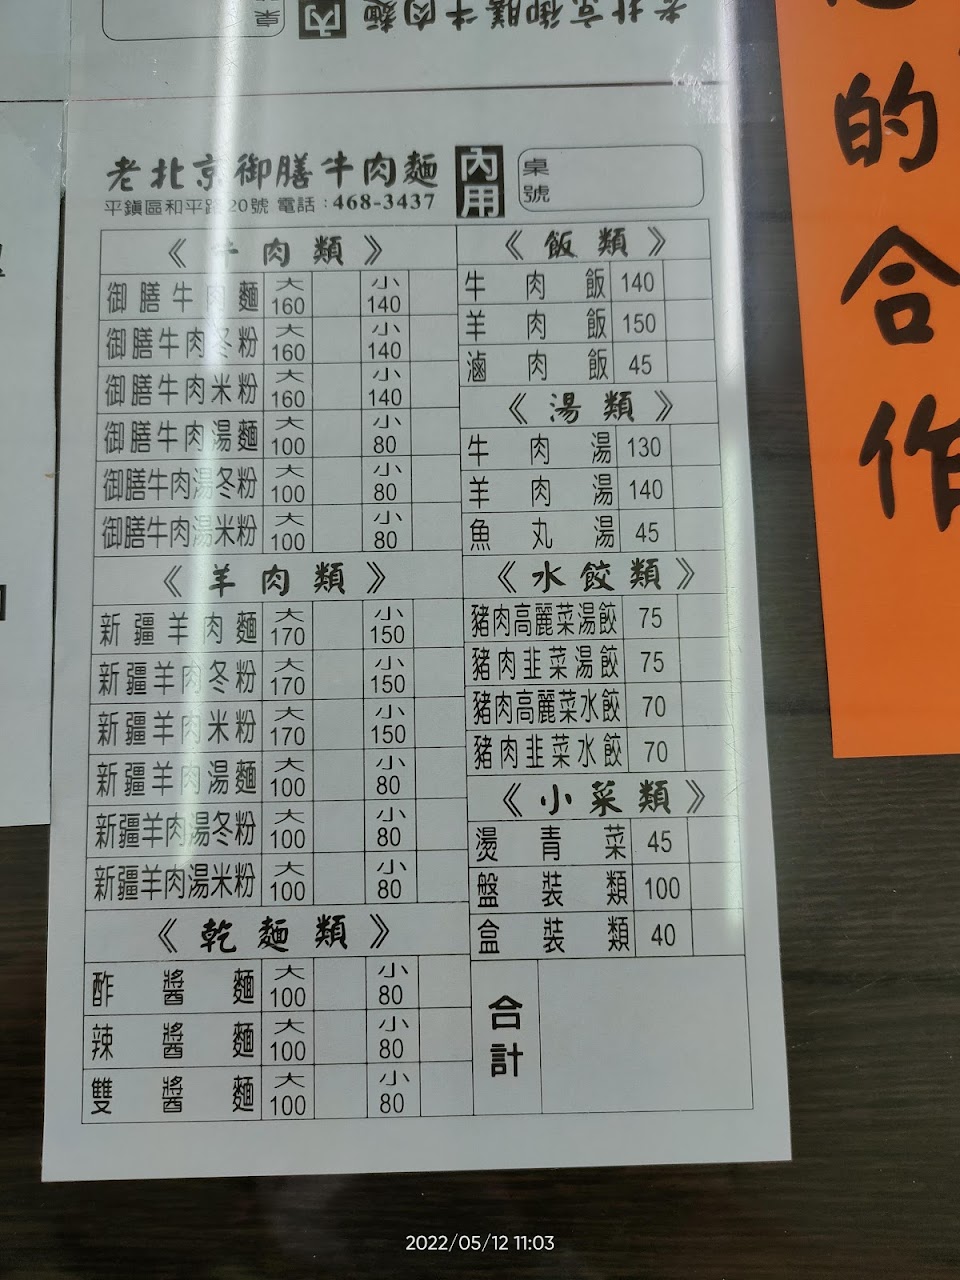 老北京御膳牛肉麵
內
桌
老北京御膳牛肉麵 內用 桌號
平鎮區和平路20號 電話：468-3437
《牛肉類》
御膳牛肉麵 大160 小140
御膳牛肉冬粉 大160 小140
御膳牛肉米粉 大160 小140
御膳牛肉湯麵 大100 小80
御膳牛肉湯冬粉 大100 小80
御膳牛肉湯米粉 大100 小80
《羊肉類》
新疆羊肉麵 大170 小150
新疆羊肉冬粉 大170 小150
新疆羊肉米粉 大170 小150
新疆羊肉湯麵 大100 小80
新疆羊肉湯冬粉 大100 小80
新疆羊肉湯米粉 大100 小80
《乾麵類》
酢醬麵 大100 小80
辣醬麵 大100 小80
雙醬麵 大100 小80
《飯類》
牛肉飯 140
羊肉飯 150
滷肉飯 45
《湯類》
牛肉湯 130
羊肉湯 140
魚丸湯 45
《水餃類》
豬肉高麗菜湯餃 75
豬肉韭菜湯餃 75
豬肉高麗菜水餃 70
豬肉韭菜水餃 70
《小菜類》
燙青菜 45
盤裝類 100
盒裝類 40
合計
的合作
2022/05/12 11:03